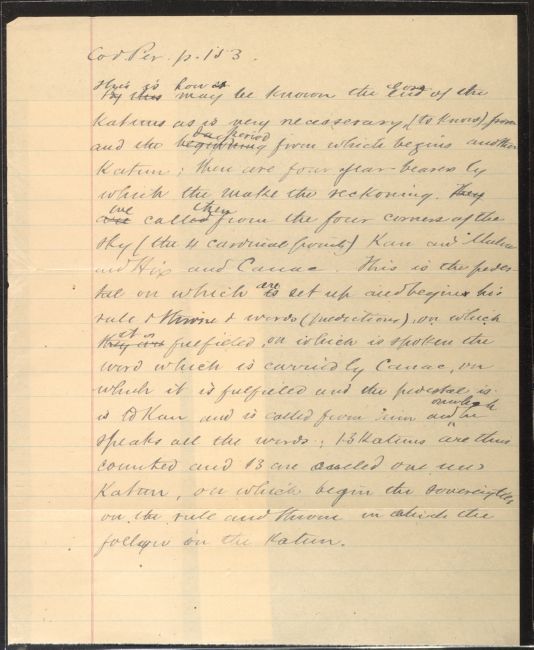 Cod. Per. p. 153.
This is how it
~~by this~~ may be known the ~~End~~ of the
Katuns as is very necesserary, (to know) from
day period
and the ~~beginning~~ from which begins another
Katun; then are four year-bearers by
which the make the reckoning. ~~They~~
they
~~are~~ called from the four corners of the
sky (the 4 cardinal points) Kan and Muluc
and Hix and Cauac. This is the pedes-
tal on which are set up and begins his
rule & ~~throne~~ & words (predictions), on which
it is
~~they are~~ fulfieled, on which is spoken the
word which is carried by Cauac, on
which it is fulfieled and the pedestal is
is Kan and is called from him and he
speaks all the words; 13 Katuns are thus
counted and 13 are called one
Katun, on which begin the
on the rule and throne in which the
follow on the Katun.